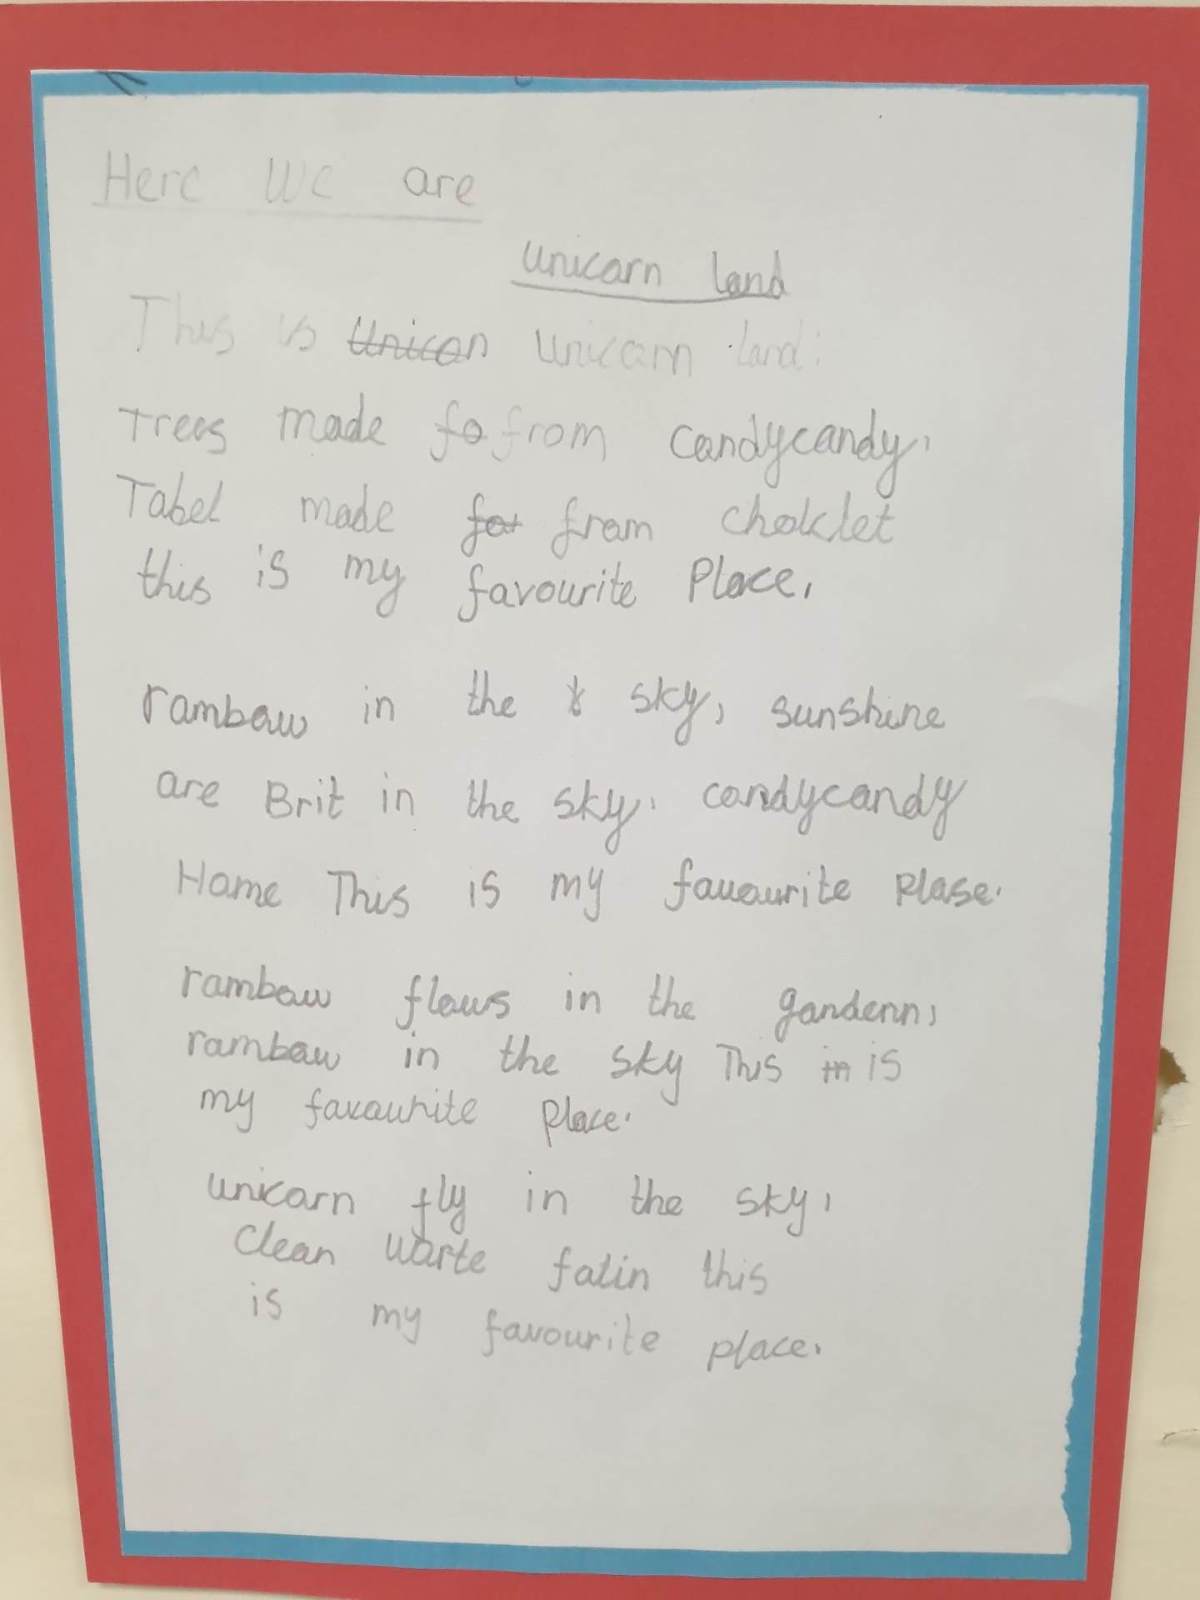 Here we are
unicarn land
This is unicarn land:
Trees made from candycandy,
Tabel made from choklet
this is my favourite Place,
rambow in the sky, sunshine
are Brit in the sky. candycandy
Home This is my favourite Plase.
rambow flows in the gandenn,
rambow in the sky This is
my favourite Place.
unicarn fly in the sky,
Clean warte falin this
is my favourite place.